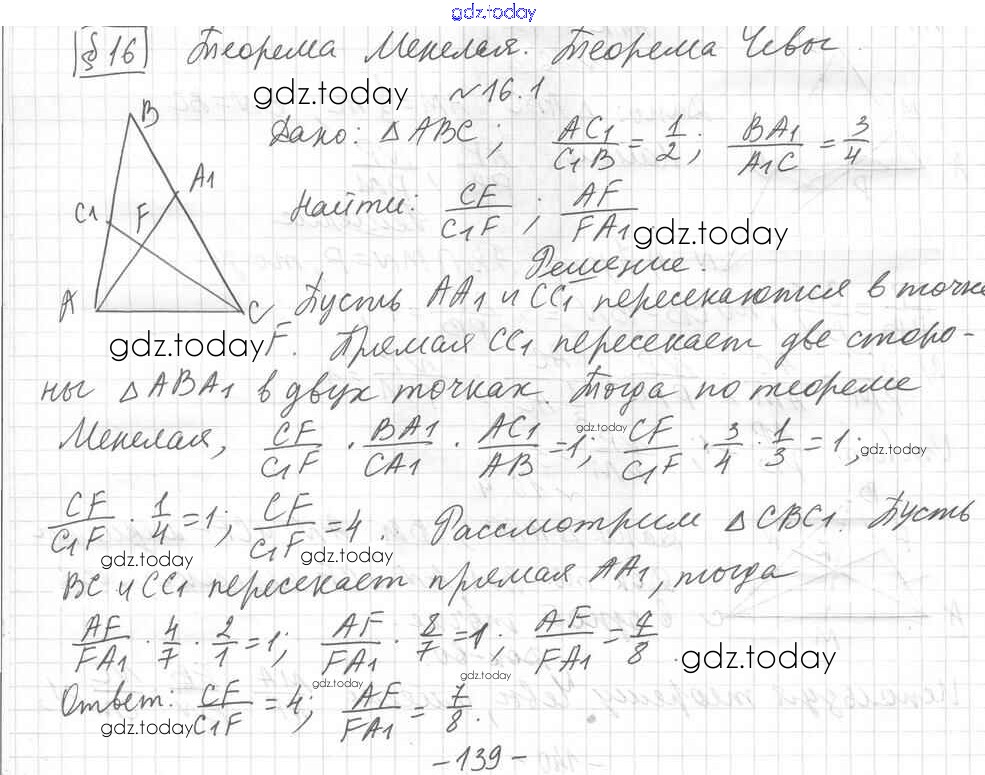 gdz.today
§ 16 Теорема Менелая. Теорема Чевы
gdz.today № 16.1
B
A1
C1 F
A C
Дано: △ABC; AC1/C1B = 1/2; BA1/A1C = 3/4
Найти: CF/C1F; AF/FA1 gdz.today
Решение:
Пусть AA1 и CC1 пересекаются в точке
gdz.today F. Прямая CC1 пересекает две сторо-
ны △ABA1 в двух точках. Тогда по теореме
Менелая, CF/C1F · BA1/CA1 · AC1/AB = 1; gdz.today CF/C1F · 3/4 · 1/3 = 1; gdz.today
CF/C1F · 1/4 = 1; CF/C1F = 4. Рассмотрим △CBC1. Пусть
gdz.today gdz.today
BC и CC1 пересекает прямая AA1, тогда
AF/FA1 · 4/7 · 2/1 = 1; AF/FA1 · 8/7 = 1; AF/FA1 = 7/8 gdz.today
gdz.today gdz.today
Ответ: CF/C1F = 4; AF/FA1 = 7/8.
gdz.today
-139-